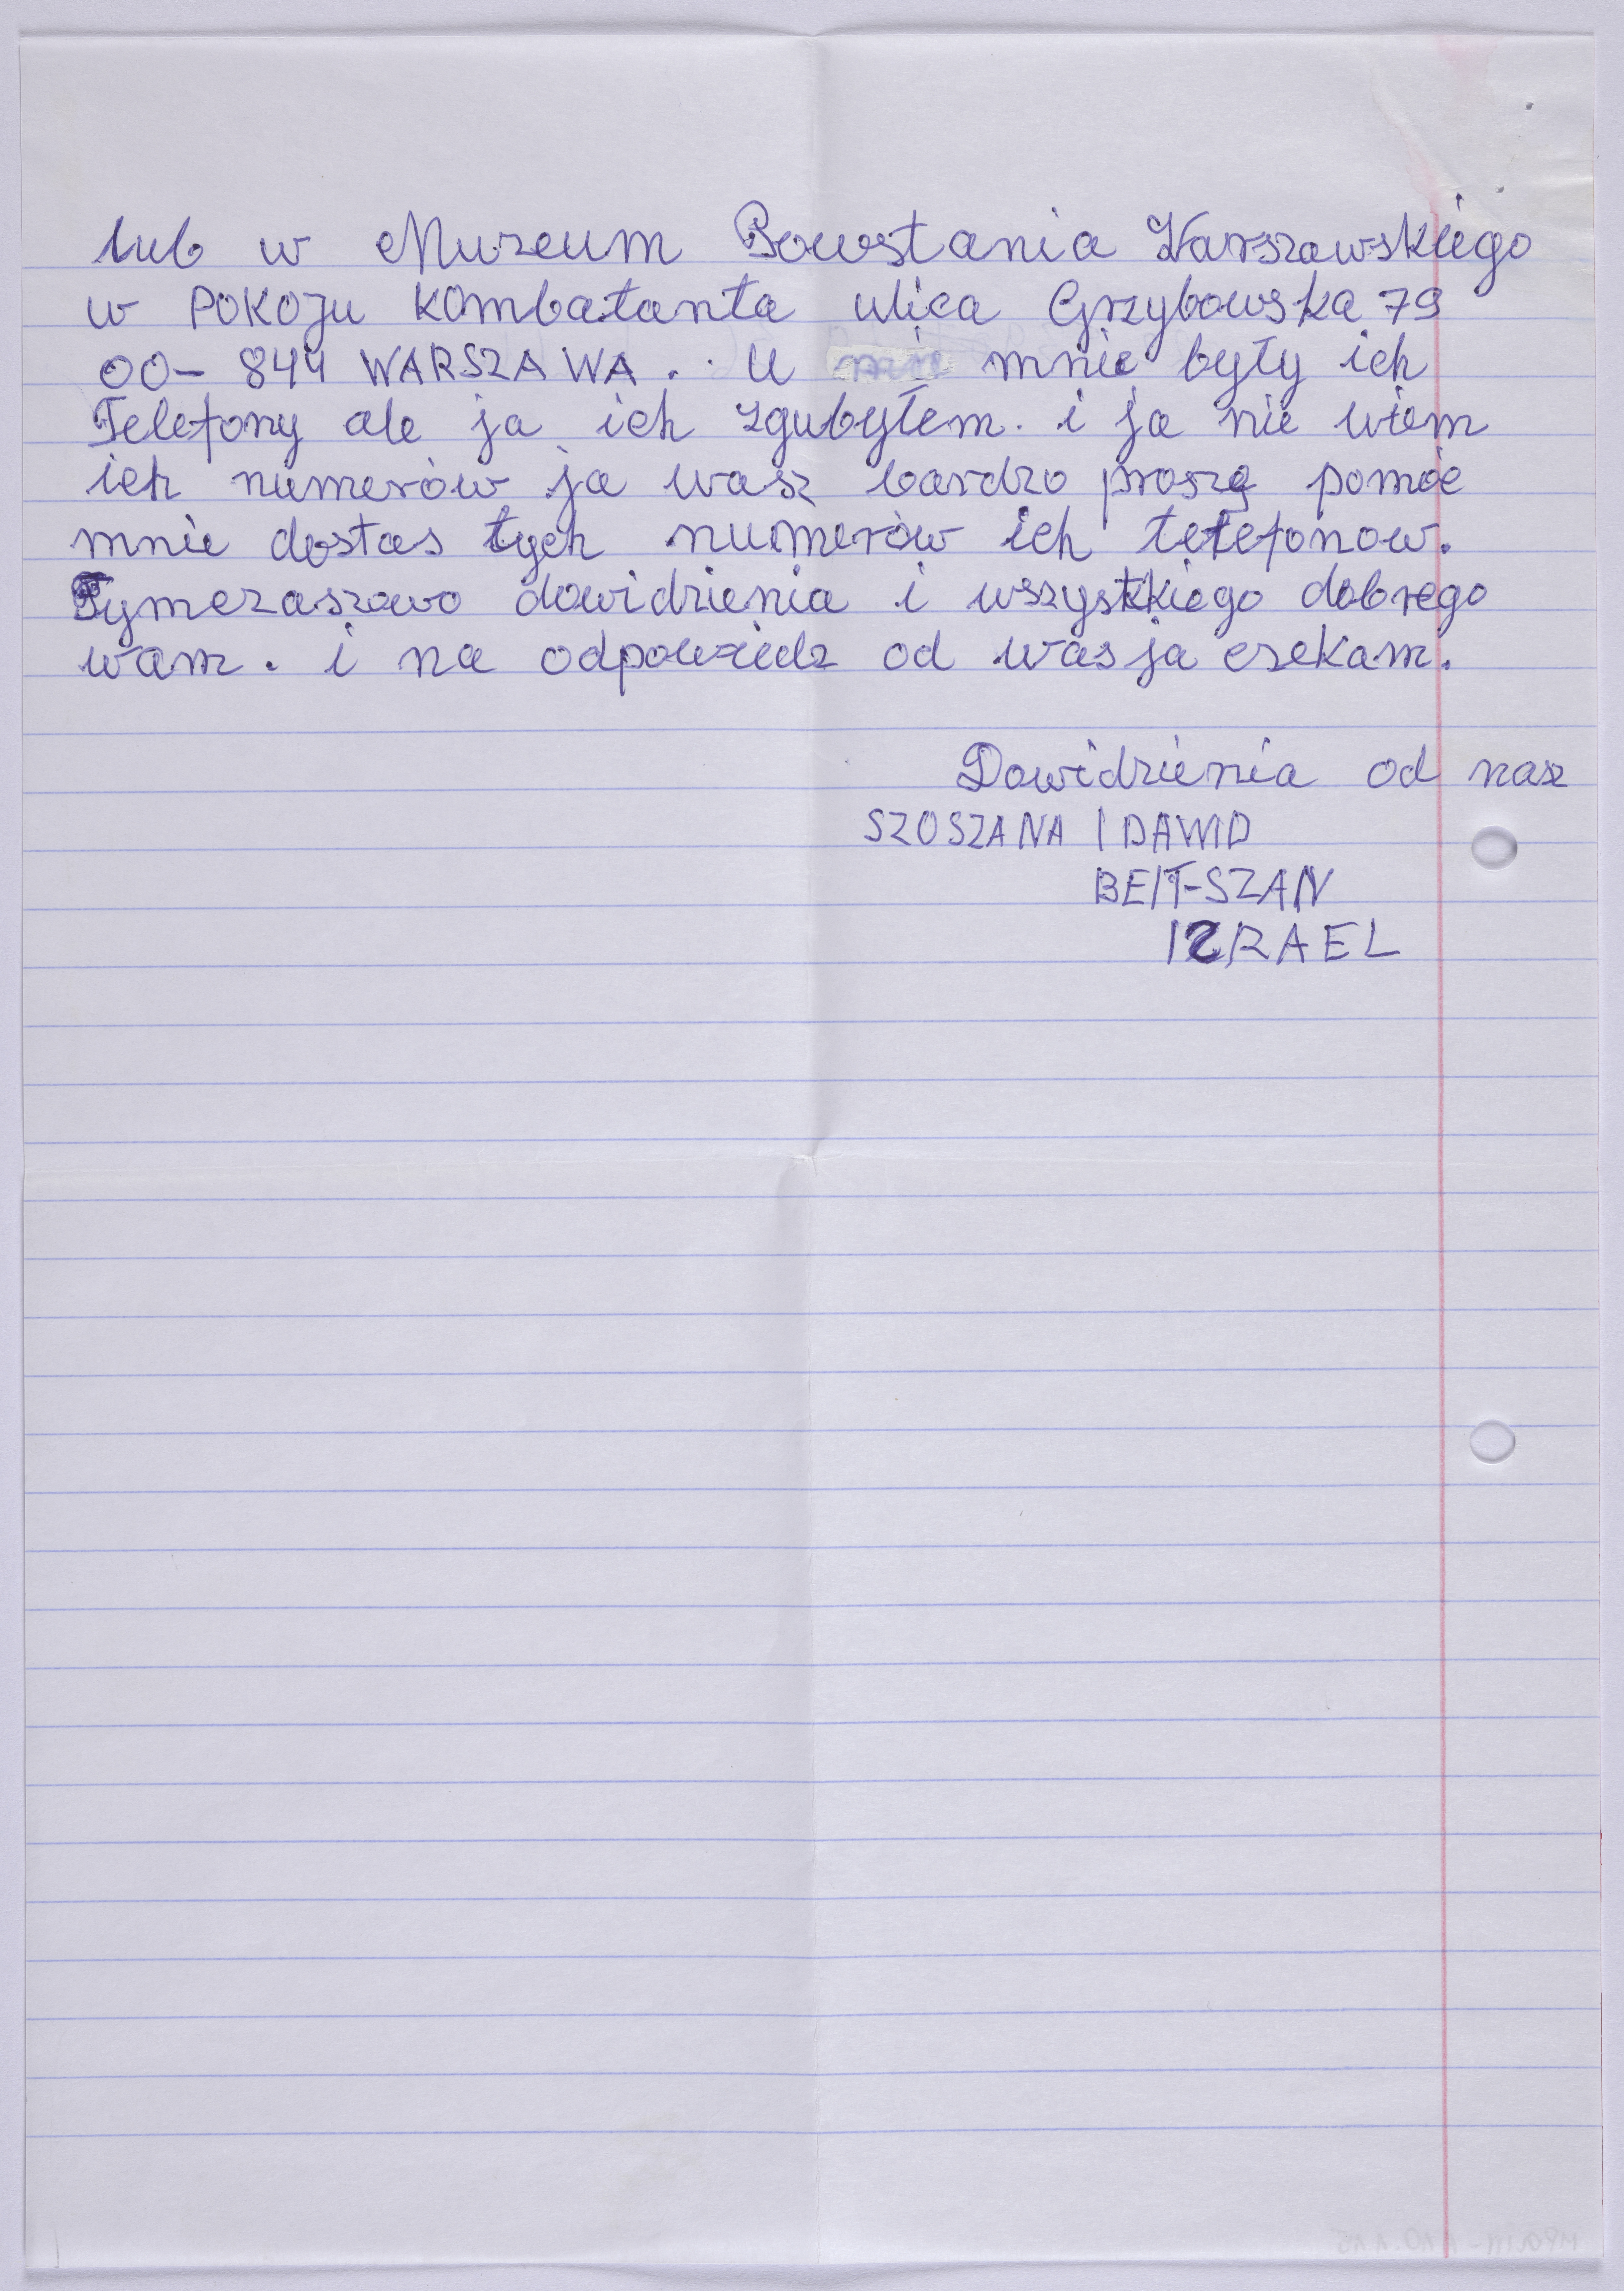 lub w Muzeum Powstania Warszawskiego
w POKOJU kombatanta ulica Grzybowska 79
00-844 WARSZAWA. U mnie były ich
Telefony ale ja ich zgubyłem. i ja nie wiem
ich numerów ja wasz bardzo proszę pomóc
mnie dostas tych numerów ich telefonow.
Tymczaszowo dowidzienia i wszystkiego dobrego
wam. i na odpowiedz od was ja czekam.
Dowidzienia od nasz
SZOSZANA I DAWID
BEIT-SZAN
IZRAEL